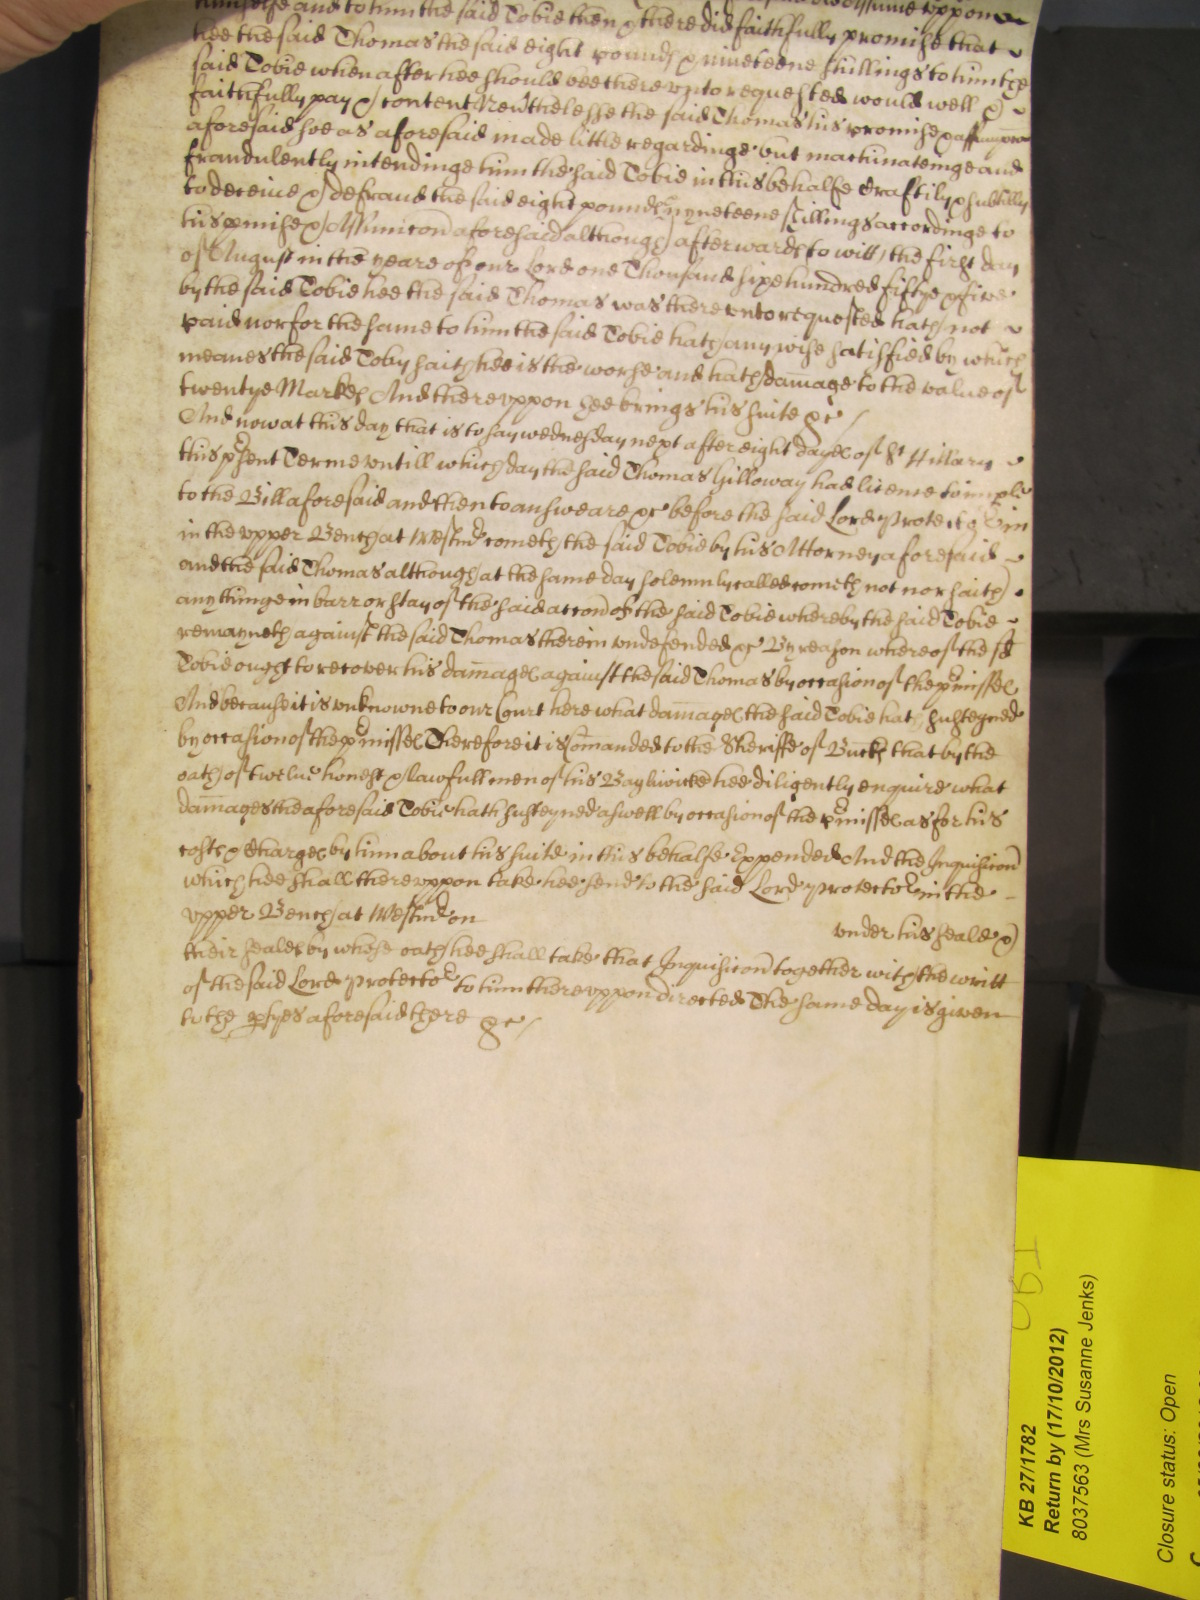 himselfe and to him the said Tobie then & there did faithfully promise that
hee the said Thomas the said eight pounds & nineteene shillings to him the
said Tobie when after hee should bee there vnto requested would well &
faithfully pay & content Nevertheless the said Thomas his promise & assumpcon
aforesaid soe as aforesaid made little regardinge but machinateinge and
fraudulently intendinge him the said Tobie in this behalfe craftily & subtilly
to deceive & defraud the said eight pounds & nyneteene shillings accordinge to
his pmise & Assumicon aforesaid although afterwards to witt the first day
of August in the yeare of our Lord one Thousand sixe hundred fiftye & five
by the said Tobie hee the said Thomas was there vnto requested hath not
paid nor for the same to him the said Tobie hath any wise satisfied by which
meanes the said Toby saith hee is the worse and hath damage to the value of
twentye Markes And therevppon hee brings his suite &c
And now at this day that is to say wednesday next after eight dayes of St Hillary
this psent Terme vntill which day the said Thomas Hilloway had licence to imple
to the Bill aforesaid and then to answeare &c before the said Lord Protector in
in the vpper Bench at Westmr cometh the said Tobie by his Attorney aforesaid
and the said Thomas although at the same day solemnly called cometh not nor saith
any thinge in barr or stay of the said accon of the said Tobie whereby the said Tobie
remayneth against the said Thomas therein vndefended &c By reason whereof the sd
Tobie ought to recover his damages against the said Thomas by occasion of the pmisses
And because it is vnknowne to our Court here what damages the said Tobie hath susteyned
by occasion of the pmisses Therefore it is Comanded to the Sheriffe of Bucks that by the
oath of twelve honest & lawfull men of his Bayliwicke hee diligently enquire what
damages the aforesaid Tobie hath susteyned aswell by occasion of the pmisses as for his
costs & Charges by him about his suite in this behalfe Expended And the Inquisicon
which hee shall therevppon take hee send to the said Lord Protector in the
vpper Bench at Westmr on vnder his seale &
their seales by whose oath hee shall take that Inquisicon together with the writt
of the said Lord Protector to him therevppon directed The same day is given
to the ptyes aforesaid there &c
KB 27/1782
Return by (17/10/2012)
8037563 (Mrs Susanne Jenks)
Closure status: Open